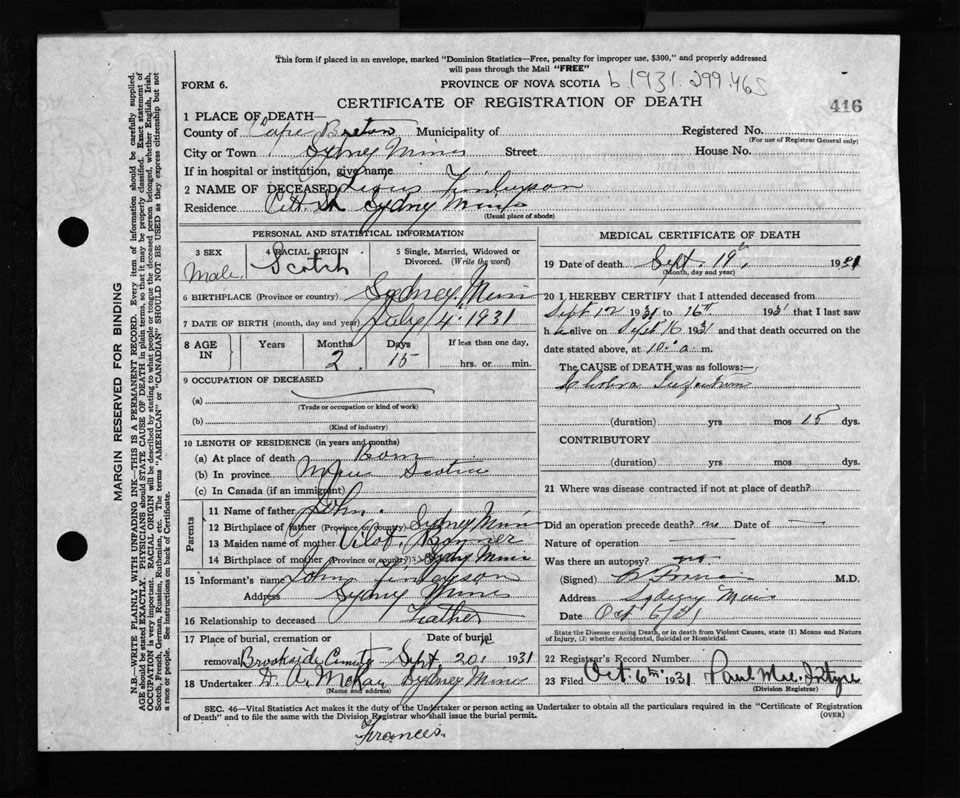 This form if placed in an envelope, marked "Dominion Statistics—Free, penalty for improper use, $300," and properly addressed
will pass through the Mail "FREE"
FORM 6. PROVINCE OF NOVA SCOTIA b 1931.299.465
CERTIFICATE OF REGISTRATION OF DEATH 416
1 PLACE OF DEATH—
County of Cape Breton Municipality of Registered No.
(For use of Registrar General only)
City or Town Sydney Mines Street House No.
If in hospital or institution, give name
2 NAME OF DECEASED Finlayson
Residence Pitt St Sydney Mines
(Usual place of abode)
PERSONAL AND STATISTICAL INFORMATION
3 SEX 4 RACIAL ORIGIN 5 Single, Married, Widowed or
Divorced. (Write the word)
Male Scotch
6 BIRTHPLACE (Province or country) Sydney Mines
7 DATE OF BIRTH (month, day and year) July 4" 1931
8 AGE IN Years Months Days If less than one day,
2 15 hrs. or min.
9 OCCUPATION OF DECEASED
(a)
(Trade or occupation or kind of work)
(b)
(Kind of industry)
10 LENGTH OF RESIDENCE (in years and months)
(a) At place of death Born
(b) In province Nova Scotia
(c) In Canada (if an immigrant)
Parents
11 Name of father John
12 Birthplace of father (Province or country) Sydney Mines
13 Maiden name of mother
14 Birthplace of mother (Province or country) Sydney Mines
15 Informant's name John Finlayson
Address Sydney Mines
16 Relationship to deceased Father
17 Place of burial, cremation or Date of burial
removal Brookside Cemetery Sept. 20, 1931
18 Undertaker D. A. McKay Sydney Mines
(Name and address)
MEDICAL CERTIFICATE OF DEATH
19 Date of death Sept. 19, 1931
(Month, day and year)
20 I HEREBY CERTIFY that I attended deceased from
Sept 12 1931 to 16th 1931 that I last saw
h alive on Sept 16 1931 and that death occurred on
date stated above, at 10 a. m.
The CAUSE OF DEATH was as follows:—
Cholera Infantum
(duration) yrs mos 15 dys.
CONTRIBUTORY
(duration) yrs mos dys.
21 Where was disease contracted if not at place of death?
Did an operation precede death? no Date of
Nature of operation
Was there an autopsy? no
(Signed) M.D.
Address Sydney Mines
Date Oct 6/31
State the Disease causing Death, or in death from Violent Causes, state (1) Means and Nature
of Injury, (2) whether Accidental, Suicidal or Homicidal.
22 Registrar's Record Number
23 Filed Oct. 6th 1931 Paul McIntyre
(Division Registrar)
SEC. 46—Vital Statistics Act makes it the duty of the Undertaker or person acting as Undertaker to obtain all the particulars required in the "Certificate of Registration
of Death" and to file the same with the Division Registrar who shall issue the burial permit. (OVER)
Francis.
MARGIN RESERVED FOR BINDING
N.B.—WRITE PLAINLY WITH UNFADING INK—THIS IS A PERMANENT RECORD. Every item of information should be carefully supplied.
AGE should be stated EXACTLY. PHYSICIANS should STATE CAUSE OF DEATH in plain terms, so that it may be properly classified. Exact statement of
OCCUPATION is very important. RACIAL ORIGIN will be described by stating to what people or tongue the deceased person belonged, whether English, Irish,
Scotch, French, German, Russian, Ruthenian, etc. The terms "AMERICAN" or "CANADIAN" SHOULD NOT BE USED as they express citizenship but not
a race or people. See instructions on back of Certificate.